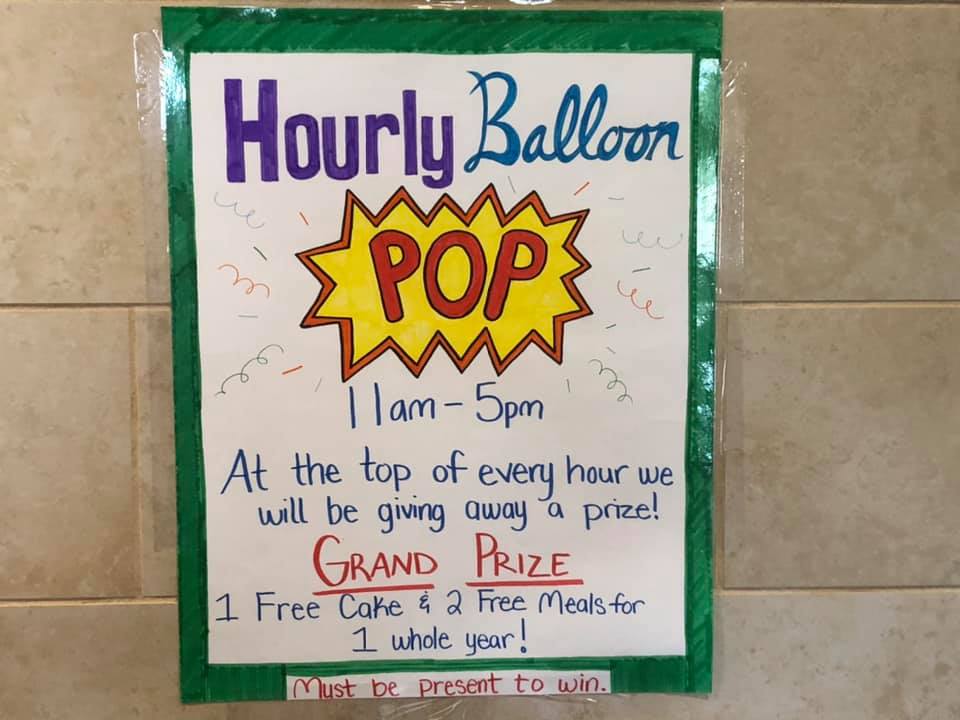 Hourly Balloon
POP
11am - 5pm
At the top of every hour we
will be giving away a prize!
GRAND PRIZE
1 Free Cake & 2 Free Meals for
1 whole year!
Must be present to win.